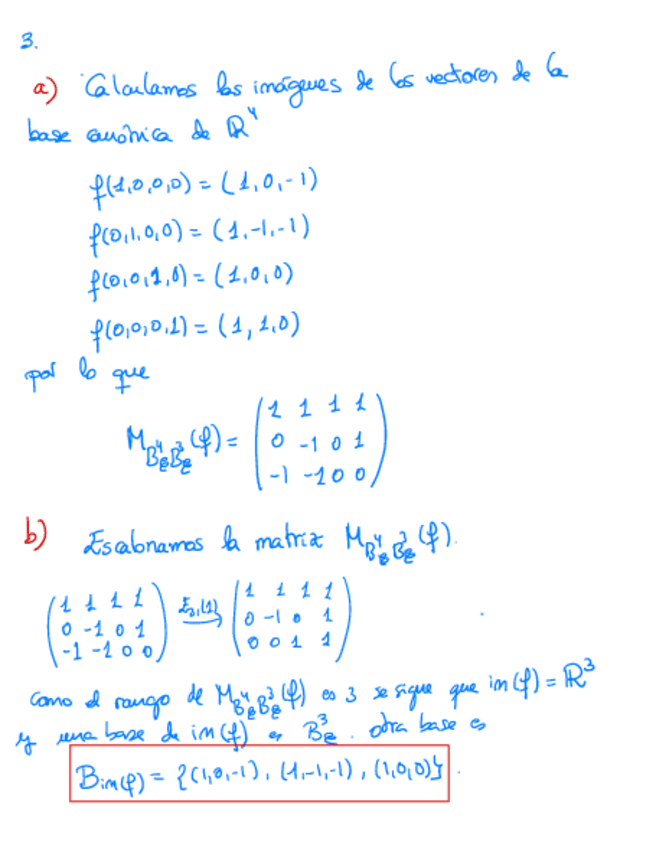 3.
a) Calculamos las imágenes de los vectores de la
base canónica de ℝ⁴
f(1,0,0,0) = (1,0,-1)
f(0,1,0,0) = (1,-1,-1)
f(0,0,1,0) = (1,0,0)
f(0,0,0,1) = (1,1,0)
por lo que
M_{B_c^4 B_c^3}(f) = ( 1 1 1 1
0 -1 0 1
-1 -1 0 0 )
b) Escalonamos la matriz M_{B_c^4 B_c^3}(f).
( 1 1 1 1 ) E_{31}(1) ( 1 1 1 1 )
( 0 -1 0 1 ) → ( 0 -1 0 1 )
( -1 -1 0 0 ) ( 0 0 1 1 )
Como el rango de M_{B_c^4 B_c^3}(f) es 3 se sigue que im(f) = ℝ³
y una base de im(f) es B_c^3. otra base es
B_{im(f)} = {(1,0,-1), (1,-1,-1), (1,0,0)}.